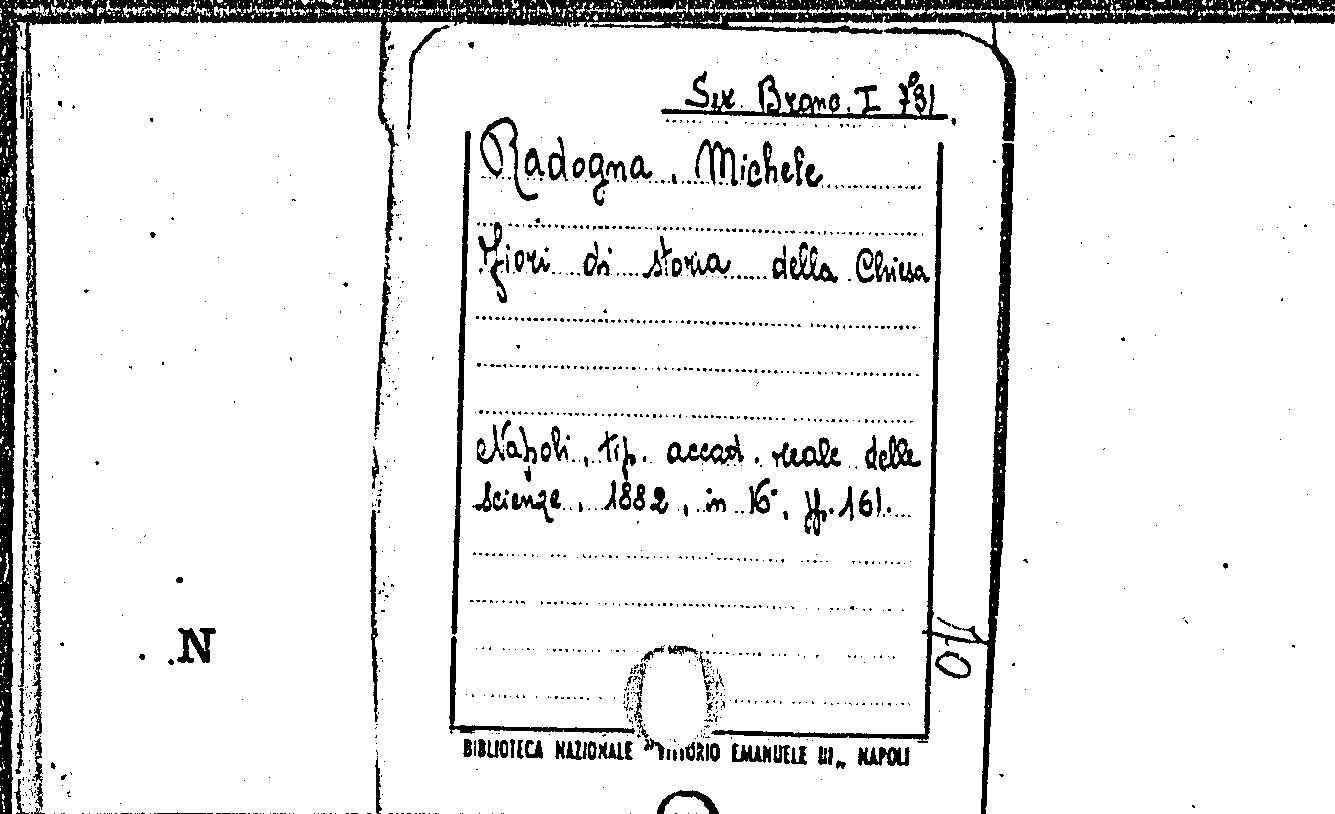 Sez. Branc. I 731
Radogna, Michele
Fiori di storia della Chiesa
Napoli, tip. accad. reale delle
scienze, 1882, in 16°, pp. 161.
N
BIBLIOTECA NAZIONALE "VITTORIO EMANUELE III" NAPOLI